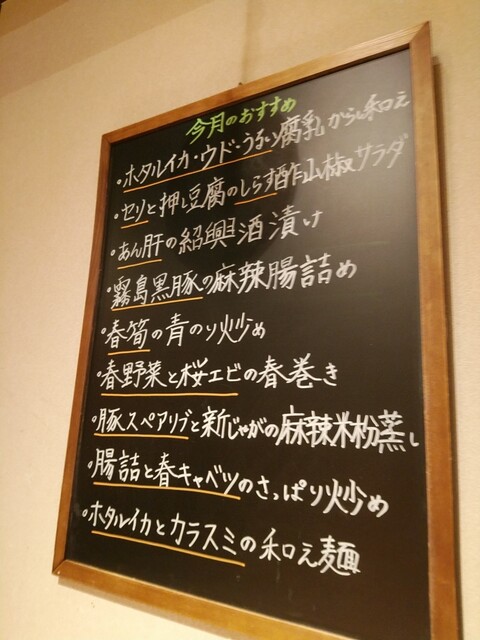 今月のおすすめ
・ホタルイカ・ウド・うるい腐乳からし和え
・セリと押し豆腐のしらす酢山椒サラダ
・あん肝の紹興酒漬け
・霧島黒豚の麻辣腸詰め
・春筍の青のり炒め
・春野菜と桜エビの春巻き
・豚スペアリブと新じゃがの麻辣米粉蒸し
・腸詰と春キャベツのさっぱり炒め
・ホタルイカとカラスミの和え麺